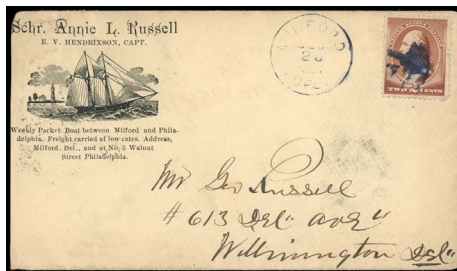 Schr. Annie L. Russell
E. V. HENDRIXSON, CAPT.
Weekly Packet Boat between Milford and Phila-
delphia. Freight carried at low rates. Address,
Milford, Del., and at No. 5 Walnut
Street Philadelphia.
MILFORD
20
DEL.
TWO CENTS
Mr Geo Russell
# 613 Del" ave"
Willmington Del"